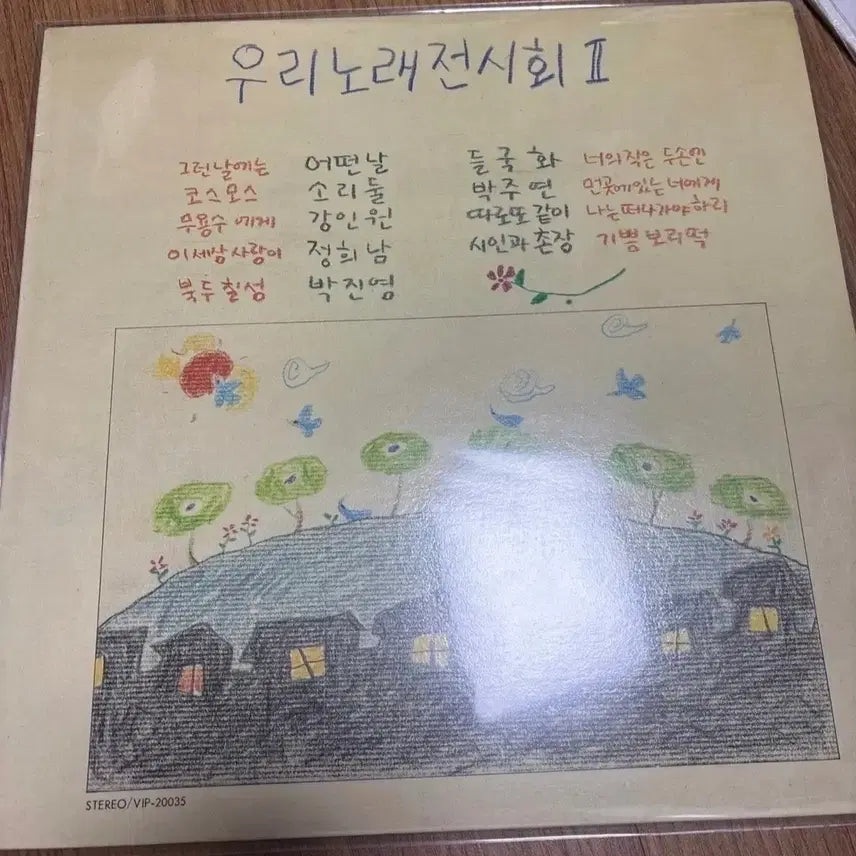 우리노래전시회 II
그런날에는 어떤날
코스모스 소리둘
무용수에게 강인원
이세상사랑이 정희남
북두칠성 박진영
들국화 너의작은 두손엔
박주연 먼곳에있는너에게
따로또같이 나는떠나가야하리
시인과 촌장 기쁨보리떡
STEREO/VIP-20035